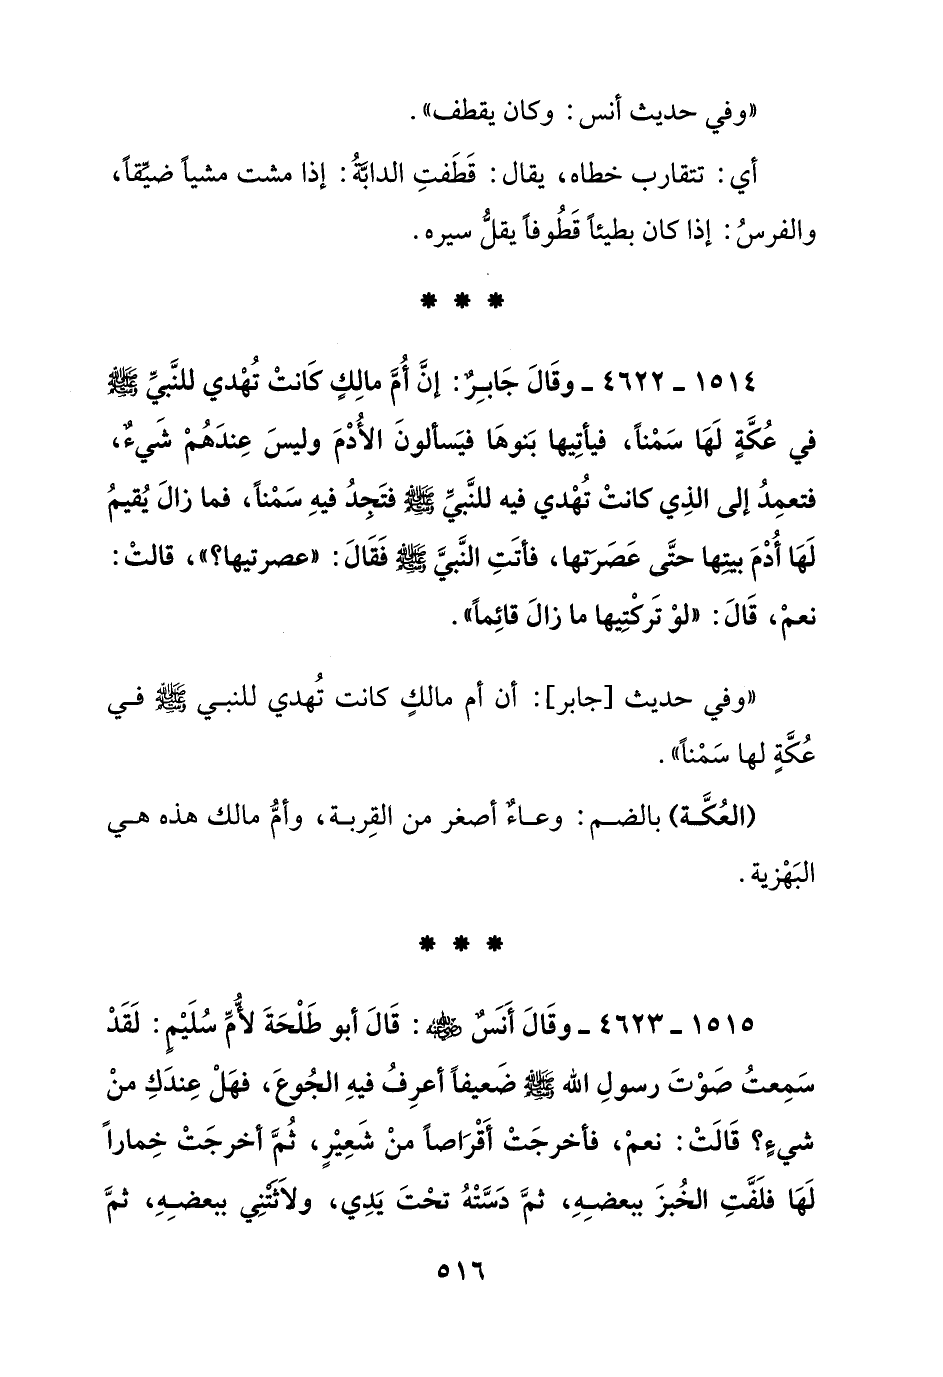 «وفي حديث أنس: وكان يقطف».
أي: تتقارب خطاه، يقال: قَطَفتِ الدابَّةُ: إذا مشت مشياً ضيِّقاً،
والفرسُ: إذا كان بطيئاً قَطُوفاً يقلُّ سيره.
* * *
١٥١٤ ـ ٤٦٢٢ ـ وقَالَ جَابِرٌ: إنَّ أُمَّ مالِكٍ كَانتْ تُهْدي للنَّبيِّ ﷺ
في عُكَّةٍ لَهَا سَمْناً، فيأتِيها بَنوهَا فيَسألونَ الأُدْمَ وليسَ عِندَهُمْ شَيءٌ،
فتعمِدُ إلى الذِي كانتْ تُهْدي فيه للنَّبيِّ ﷺ فتَجِدُ فيهِ سَمْناً، فما زالَ يُقيمُ
لَهَا أُدْمَ بيتِها حتَّى عَصَرَتها، فأتَتِ النَّبيَّ ﷺ فَقَالَ: «عصرتيها؟»، قالتْ:
نعمْ، قَالَ: «لوْ تَركْتِيها ما زالَ قائِماً».
«وفي حديث [جابر]: أن أم مالكٍ كانت تُهدي للنبي ﷺ في
عُكَّةٍ لها سَمْناً».
(العُكَّة) بالضم: وعاءٌ أصغر من القِربة، وأمُّ مالك هذه هي
البَهْزية.
* * *
١٥١٥ ـ ٤٦٢٣ ـ وقَالَ أَنَسٌ ﷺ: قَالَ أبو طَلْحَةَ لأُمِّ سُلَيْمٍ: لَقَدْ
سَمِعتُ صَوْتَ رسولِ الله ﷺ ضَعيفاً أعرِفُ فيهِ الجُوعَ، فهَلْ عِندَكِ منْ
شيءٍ؟ قَالَتْ: نعمْ، فأخرجَتْ أقْرَاصاً منْ شَعِيْرٍ، ثُمَّ أخرجَتْ خِماراً
لَهَا فلَفَّتِ الخُبزَ ببعضِهِ، ثمَّ دَسَّتْهُ تحْتَ يَدِي، ولاَثَتْنِي ببعضِهِ، ثمَّ
٥١٦